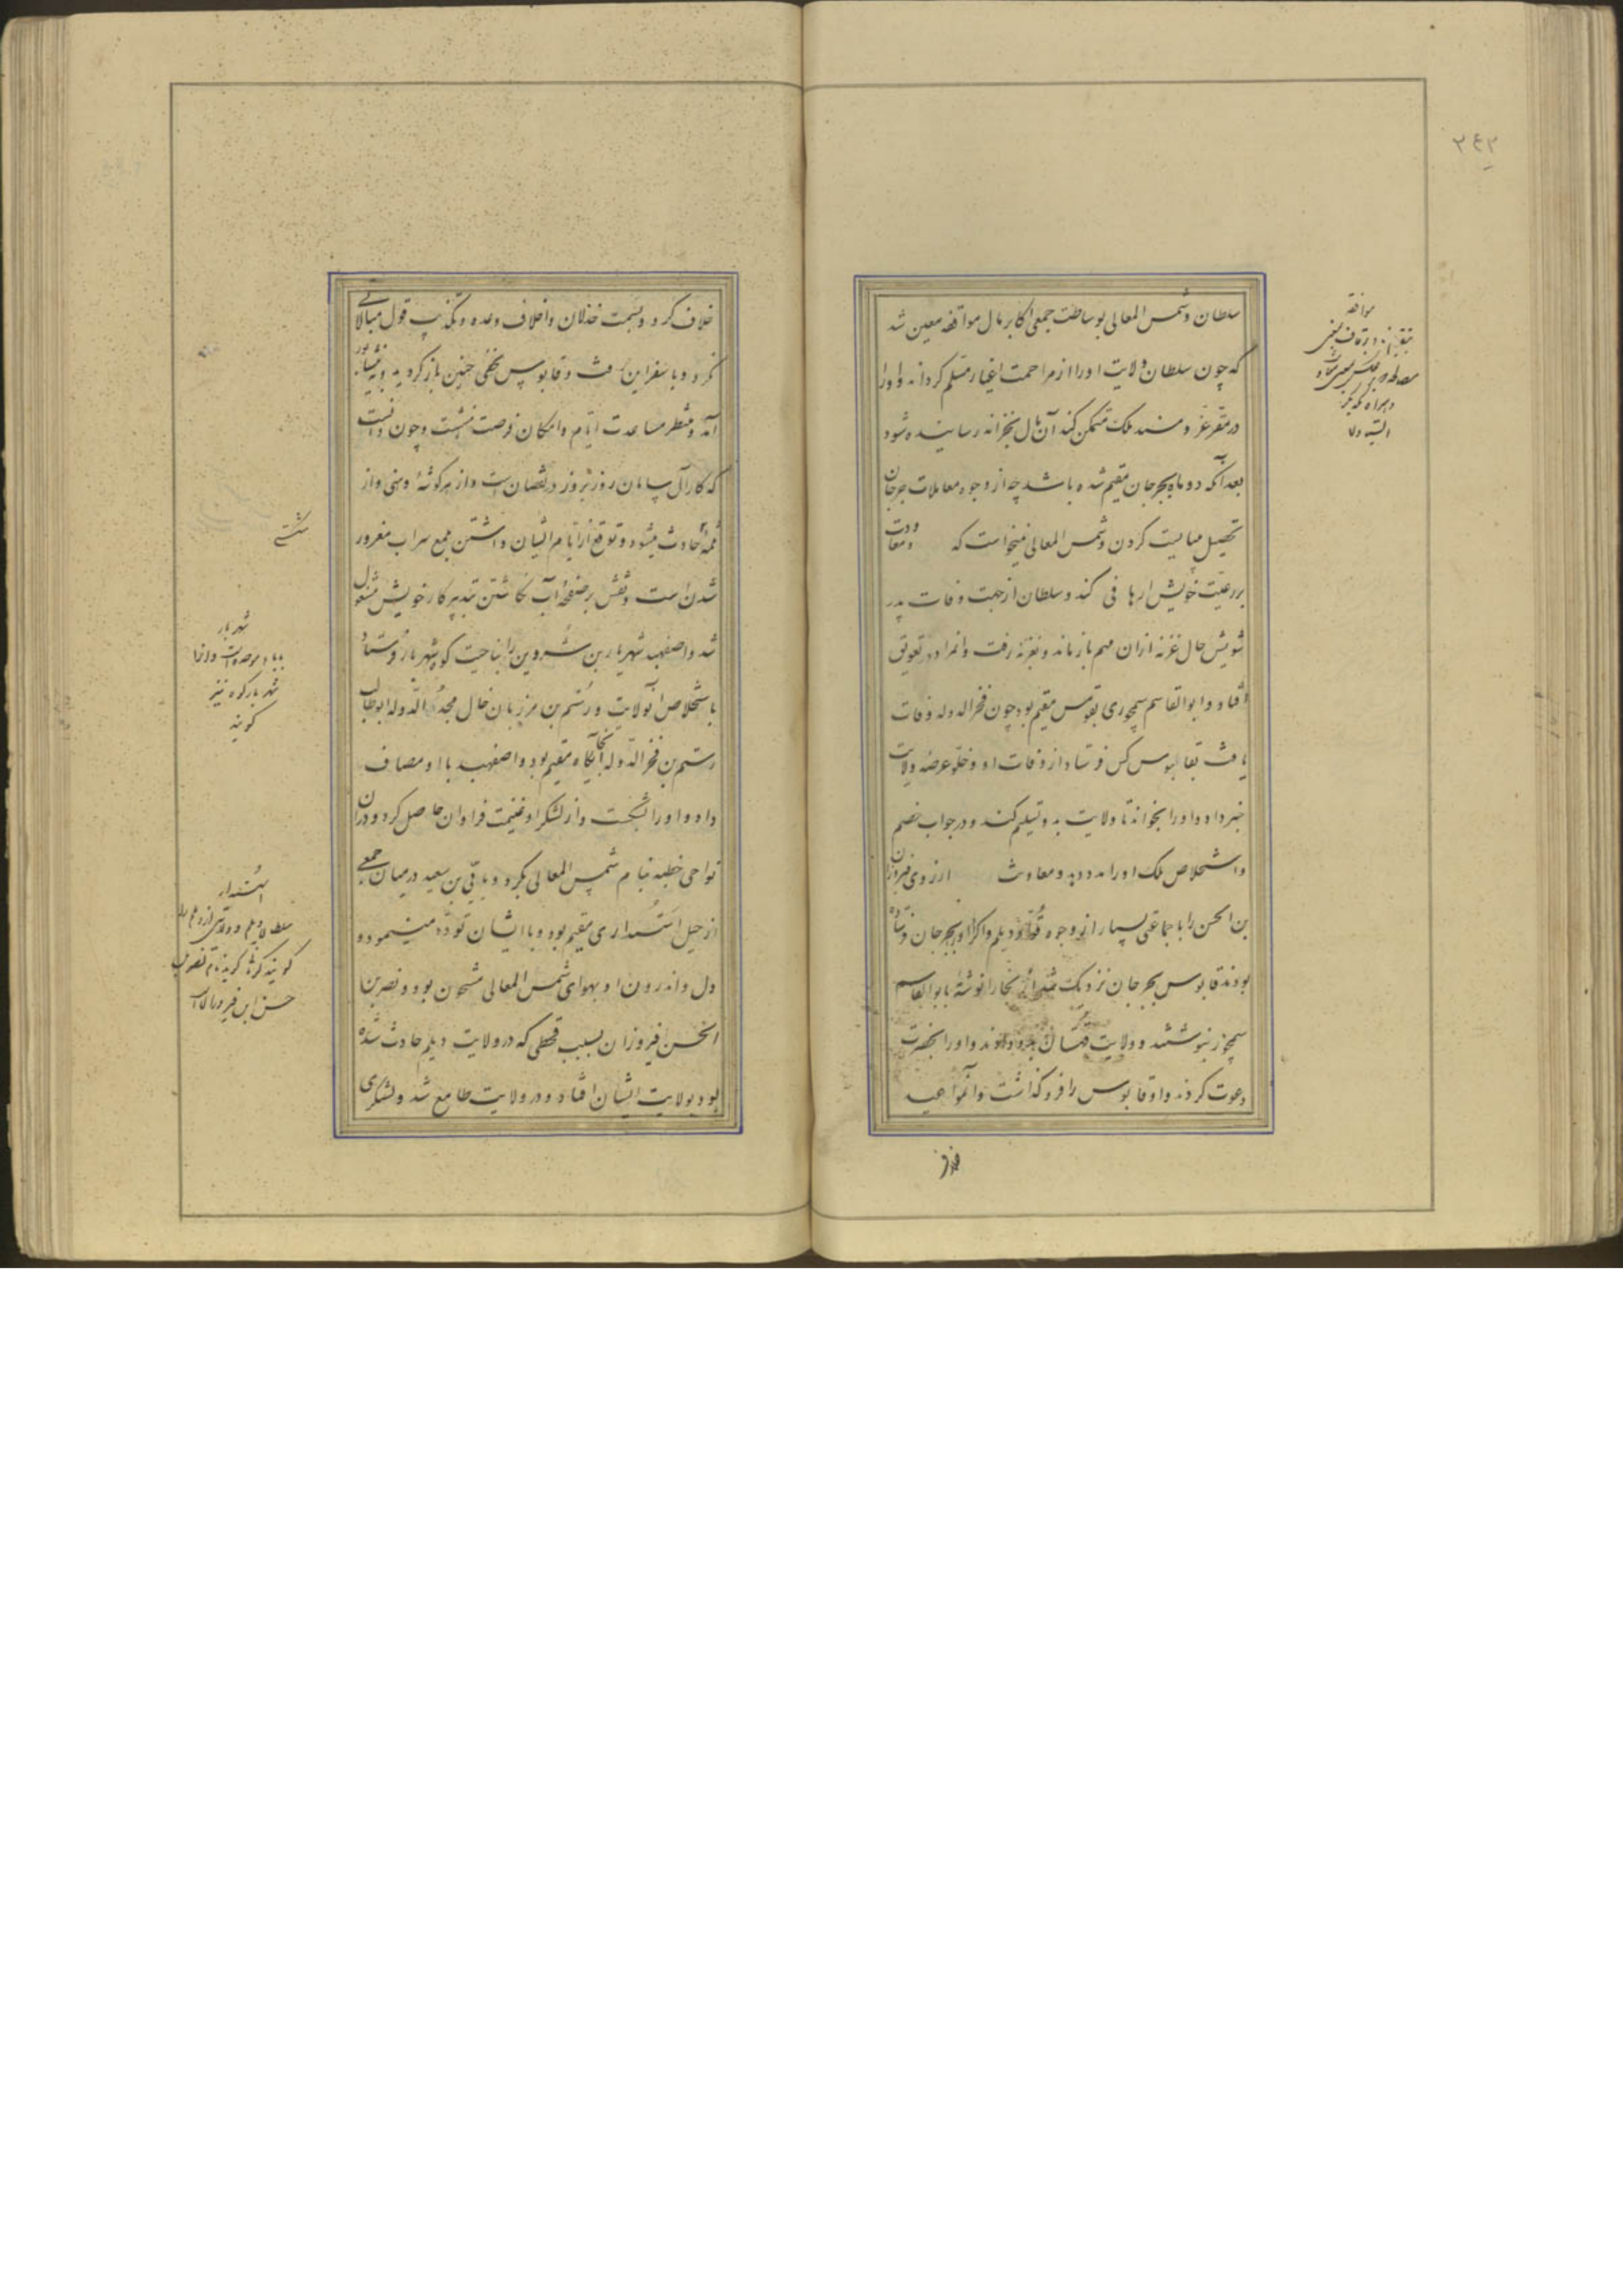 سلطان و شمس المعالی بوساطت جمعی اکابر مال مواقفه معین شد
که چون سلطان ولایت او را از مزاحمت اغیار مسلم کرداند و او را
در مقر عز و مسند ملک متمکن کند آن مال بخزانه رسانیده شود
بعد آنکه دو ماه بجرجان مقیم شده باشد چه از وجوه معاملات جرجان
تحصیل میبایست کردن و شمس المعالی نمیخواست که
بر رعیت خویش ارهاقی کند و سلطان از جهت وفات پدر
تشویش حال غزنه ازان مهم باز ماند و بغزنه رفت و آن مراد در تعویق
افتاد و ابو القاسم سیمجوری بقومس مقیم بود چون فخر الدوله وفات
یافت بقابوس کس فرستاد از وفات او و خلو عرصه ولایت
خبر داد و او را بخواند تا ولایت بدو تسلیم کند و در جواب خصم
و استخلاص ملک او را مدد دهد و معاونت از ری فیروزان
بن الحسن را با جماعتی بسیار از وجوه دیلم و اکراد بجرجان فرستاده
بودند قابوس بجرجان نزدیک شد از بخارا نوشته بابو القاسم
سیمجور نبوشتند و ولایت قهستان بدو دادند و او را بحضرت
دعوت کردند و او قابوس را فرو گذاشت و آن مواعید
خلاف کرد و بسمت خذلان و اخلاف وعده و تکذیب قول مبالاتی
نکرد و با سفراین رفت و قابوس بخفی حنین باز گردید و به نیشابور
آمد و منتظر مساعدت ایام و امکان فرصت بنشست و چون دانست
که کار آل سامان روز بروز در نقصان است و از هر گوشه وهنی و از
ثلمه حادث میشود و توقع از ایام ایشان داشتن بلمع سراب مغرور
شدن است و نقش بر صفحه آب نگاشتن بتدبیر کار خویش مشغول
شد و اصفهبد شهریار بن شروین را بناحیت کوه شهریار فرستاد
باستخلاص آن ولایت و رستم بن مرزبان خال مجد الدوله ابو طالب
رستم بن فخر الدوله آنجایگاه مقیم بود و اصفهبد با او مصاف
داد و او را بشکست و از لشکر او غنیمت فراوان حاصل کرد و در آن
نواحی خطبه بنام شمس المعالی بکرد و باتی بن سعید در میان جمعی
از جیل استنداری مقیم بود و با ایشان تودد مینمود و
دل و اندرون او بهوای شمس المعالی مشحون بود و نصر بن
الحسن فیروزان بسبب قحطی که در ولایت دیلم حادث شده
بود بولایت ایشان افتاد و در ولایت طامع شد و لشکری
مواقفه
شهریار
شهریار کوه نیز
گویند
استندار